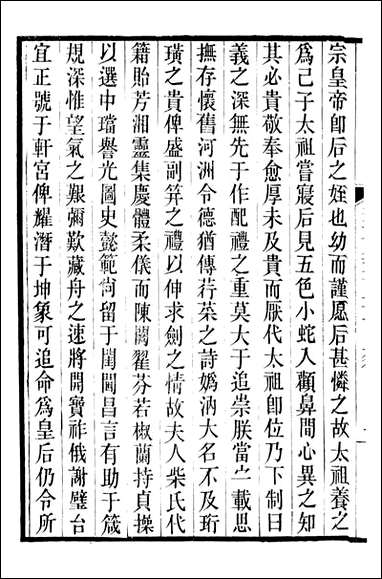 宗皇帝卽后之姪也幼而謹愿后甚憐之故太祖養之
爲己子太祖嘗寢后見五色小蛇入顴鼻間心異之知
其必貴敬奉愈厚未及貴而厭代太祖卽位乃下制曰
義之深無先于作配禮之重莫大于追崇朕當宁載思
撫存懷舊河洲令德猶傳荇菜之詩嬀汭大名不及珩
璜之貴俾盛副筓之禮以伸求劍之情故夫人柴氏代
籍貽芳湘靈集慶體柔儀而陳闕翟芬若椒蘭持貞操
以選中璫譽光圖史懿範尙留于閨閫昌言有助于箴
規深惟望氣之艱彌歎藏舟之速將開寶祚俄謝璧台
宜正號于軒宮俾耀潛于坤象可追命爲皇后仍令所